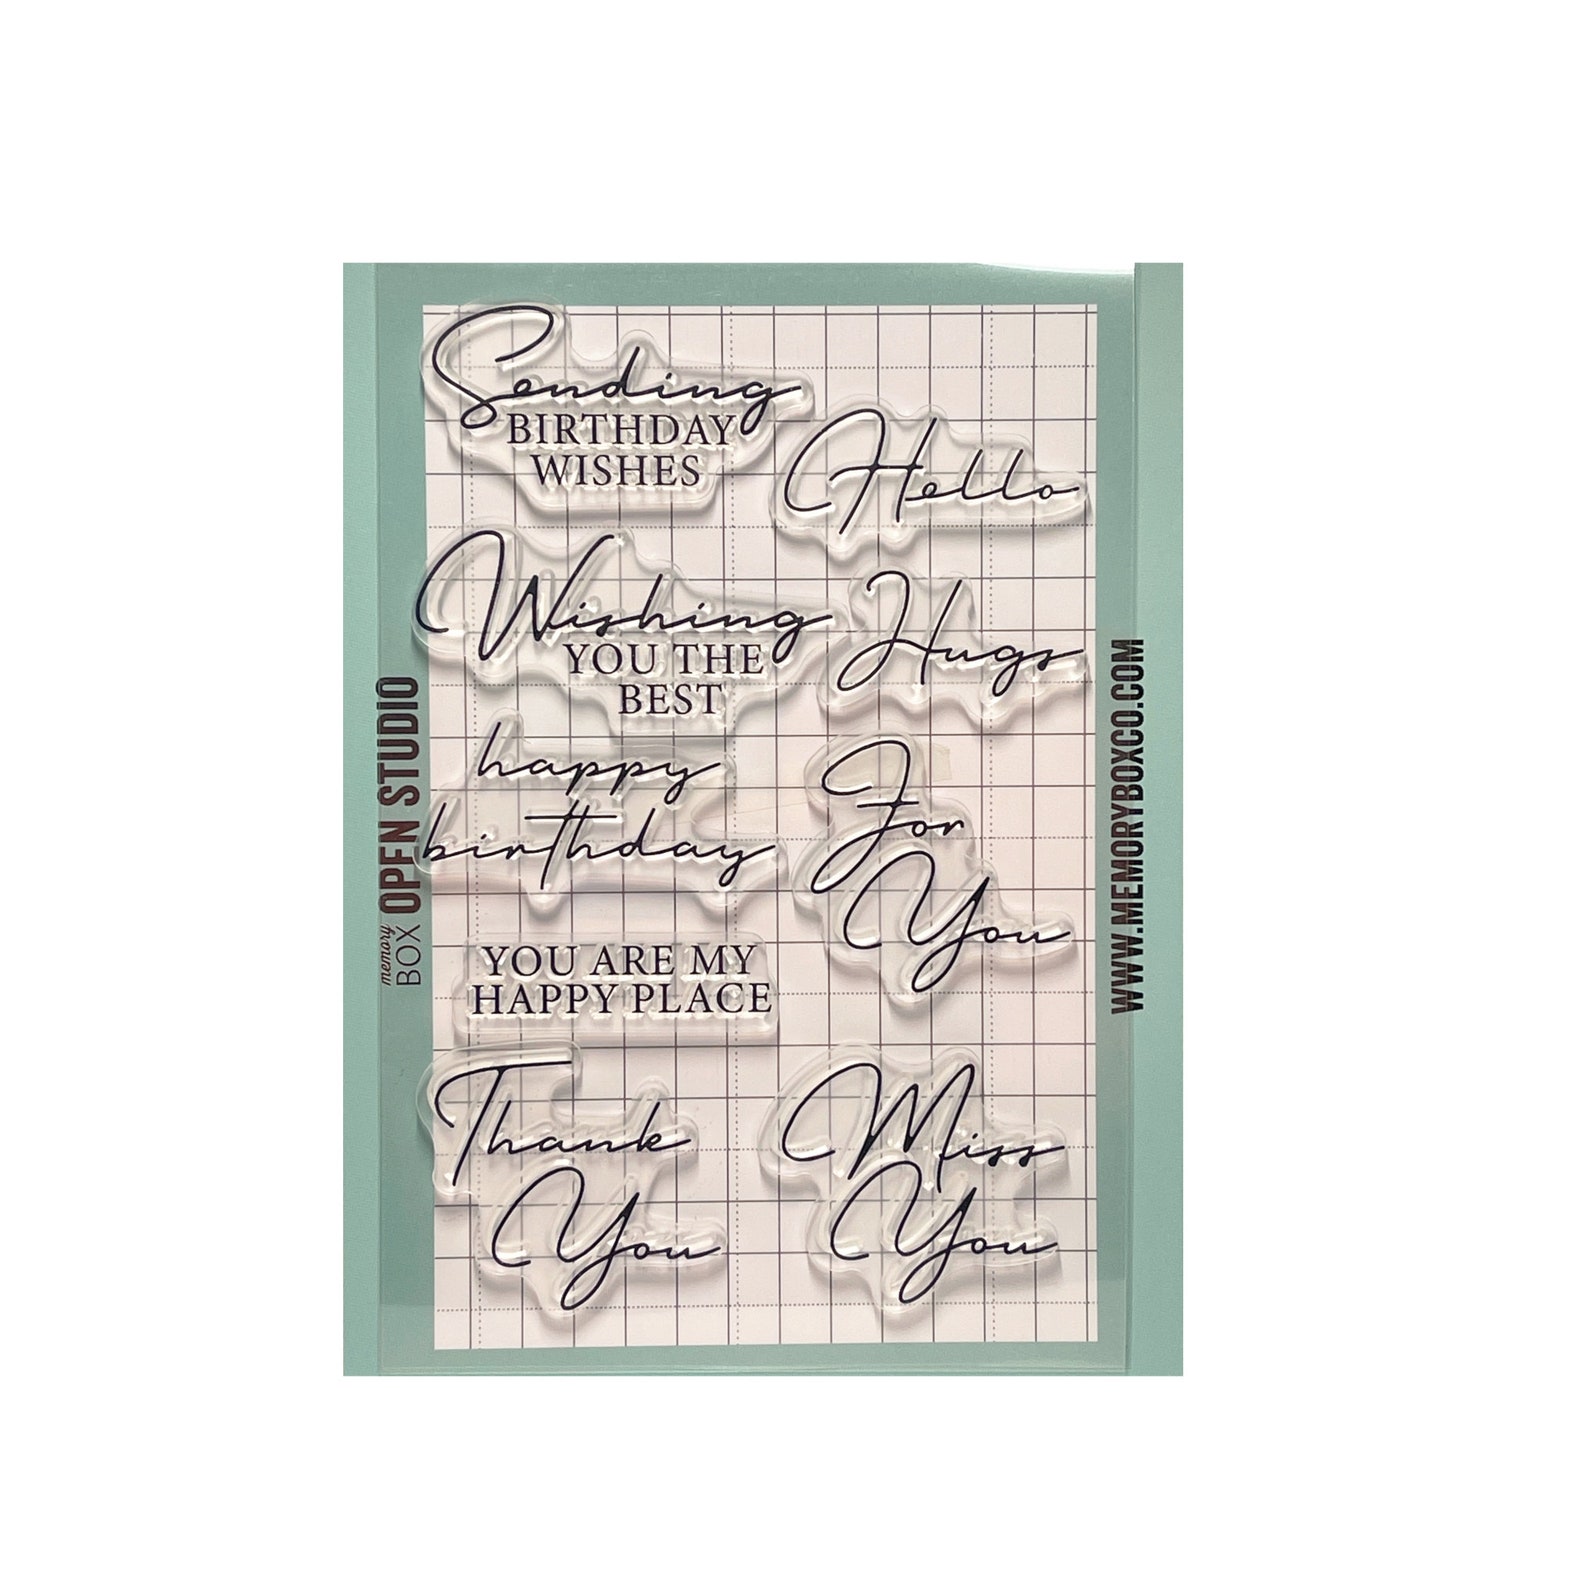 Sending
BIRTHDAY
WISHES
Hello
Wishing
YOU THE
BEST
Hugs
happy
birthday
For
You
YOU ARE MY
HAPPY PLACE
Thank
You
Miss
You
memory
BOX OPEN STUDIO
WWW.MEMORYBOXCO.COM